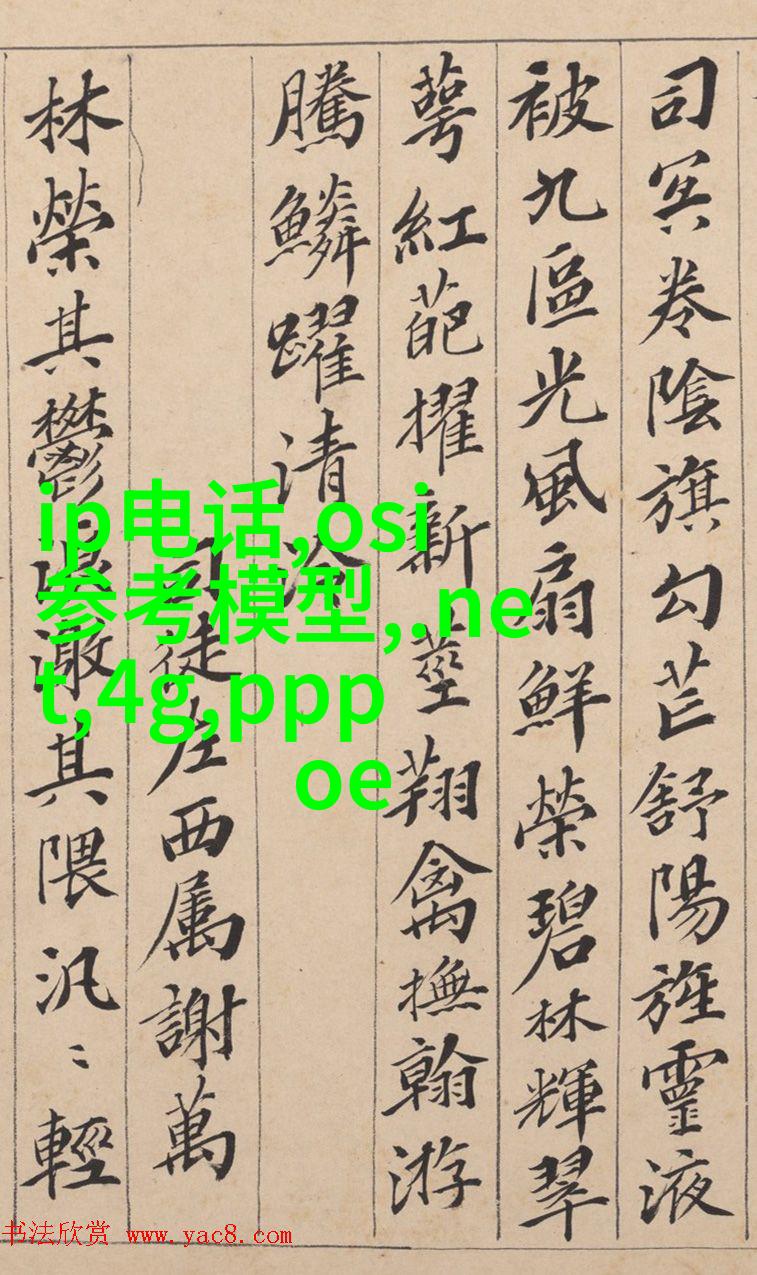 司冥卷陰旗勾芒舒陽旌靈液
被九區光風扇鮮榮碧林輝翠
萼紅葩擢新莖翔禽撫翰游
騰鱗躍清泠
司徒左西属謝萬
林榮其鬱浪激其隈汎〻輕
ip电话,osi
参考模型,.ne
t,4g,ppp
oe
书法欣赏 www.yac8.com